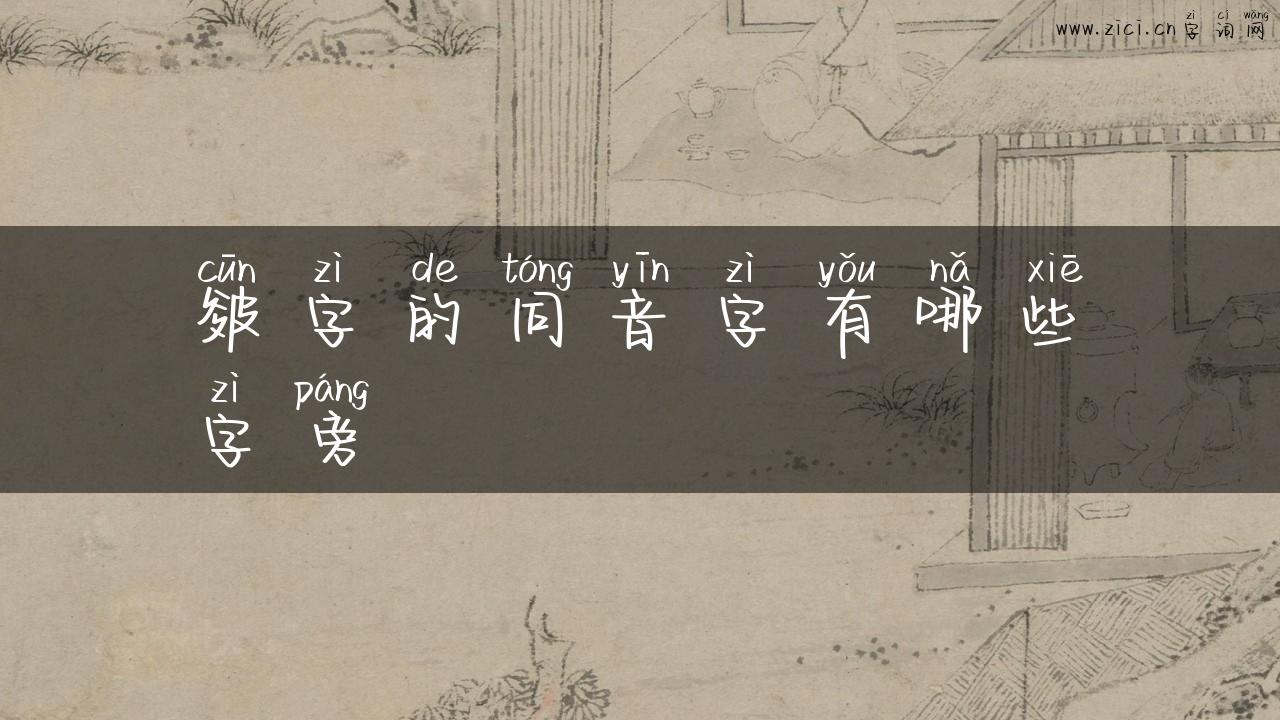 zì cí wǎng
www.zici.cn 字 词 网
cūn zì de tóng yīn zì yǒu nǎ xiē
皴 字 的 同 音 字 有 哪 些
zì páng
字 旁